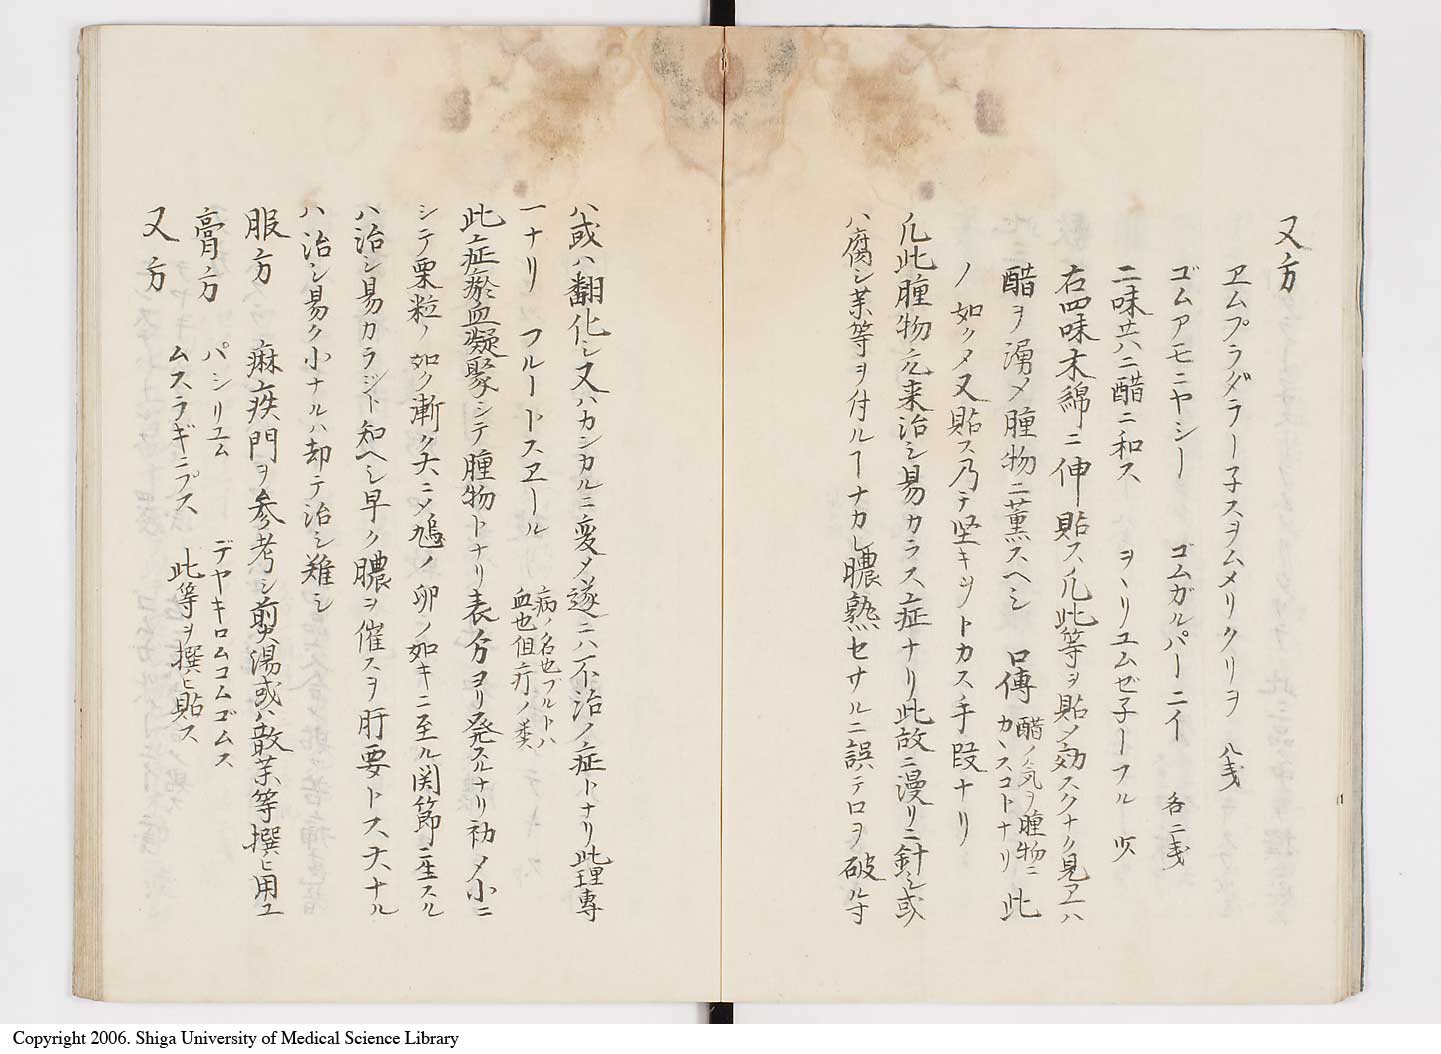 又方
ヱムプラダラー子スヲムメリクリヲ 八戔
ゴムアモニヤシー ゴムガルパーニイ 各二戔
二味共ニ醋ニ和ス ヲヽリユムゼ子ーフル 少
右四味木綿ニ伸貼ス凡此等ヲ貼メ効スクナク見ヱハ
醋ヲ湯メ腫物ニ薫スヘシ 口傳 醋ノ氣ヲ腫物ニカヽスコトナリ 此
ノ如クメ又貼ス乃テ坚キヲトカス手段ナリ
凡此腫物元来治シ易カラス症ナリ此故ニ漫リニ針シ或
ハ腐シ薬等ヲ付ルヿナカレ膿熟セサルニ誤テロヲ破ル寸
ハ或ハ翻化シ又ハカンカルニ変メ遂ニハ不治ノ症トナリ此理専
一ナリ フルートスヱール 病ノ名也ブルトハ血也但疔ノ類
此症瘀血凝聚シテ腫物トナリ表分ヨリ発スルナリ初メ小ニ
シテ粟粒ノ如ク漸ク大ニメ鳩ノ卵ノ如キニ至ル関節ニ生スル
ハ治シ易カラジト知ヘシ早ク膿ヲ催スヲ肝要トス大ナル
ハ治シ易ク小ナルハ却テ治シ難シ
服方 痳疾門ヲ参考シ煎湯或ハ散薬等撰ヒ用ユ
膏方 パシリユム デヤキロムコムゴムス
又方 ムスラギニプス 此等ヲ撰ヒ貼ス
Copyright 2006. Shiga University of Medical Science Library